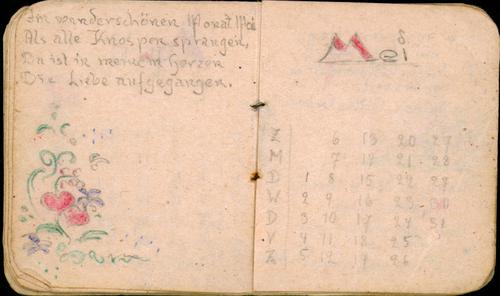 Im wunderschönen Monat Mai
Als alle Knospen sprangen,
Da ist in meinem Herzen
Die Liebe aufgegangen.
Mei
Z 6 13 20 27
M 7 14 21 28
D 1 8 15 22 29
W 2 9 16 23 30
D 3 10 17 24 31
V 4 11 18 25
Z 5 12 19 26